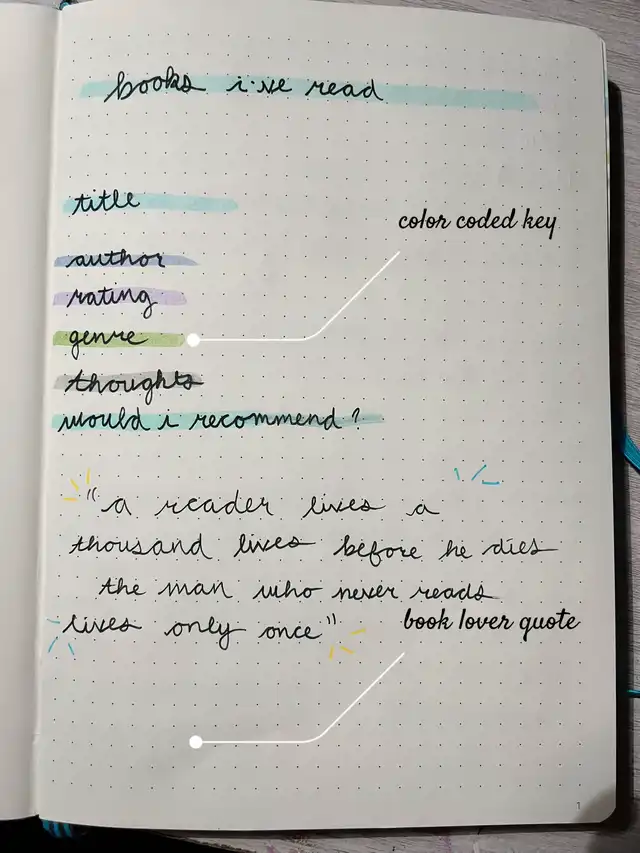 books i've read
title
color coded key
author
rating
genre
thoughts
would i recommend?
"a reader lives a
thousand lives before he dies
the man who never reads
lives only once"
book lover quote
1